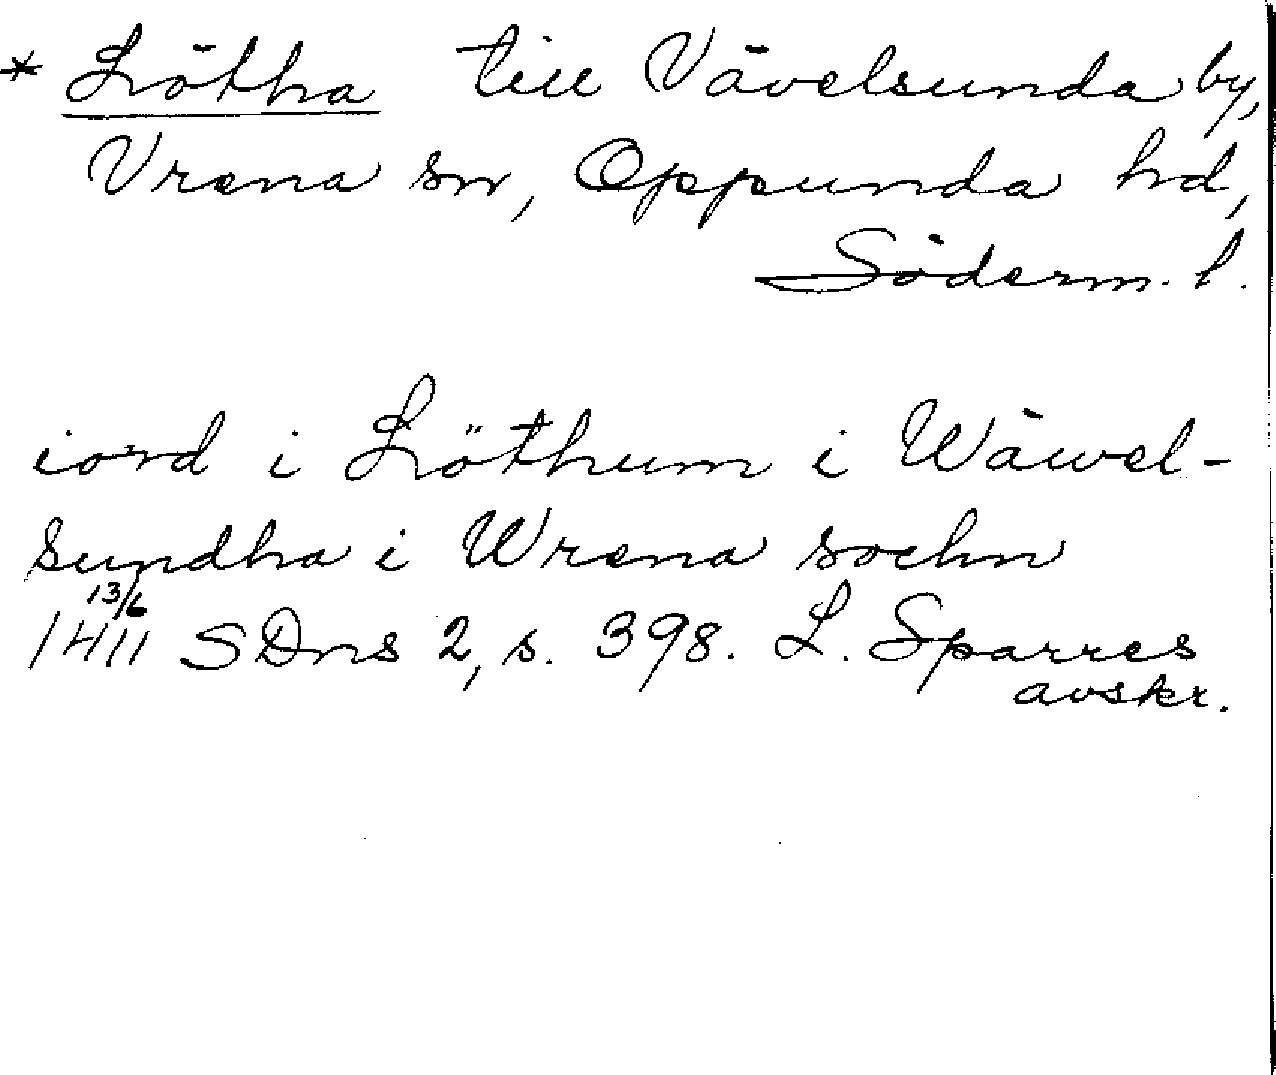 * Lötha till Vävelsunda by,
Vrena sn, Oppunda hd,
Söderm. l.
iord i Löthum i Wäwel-
sundha i Wrena sochn
13/6
1411 SDns 2, s. 398. L. Sparres
avskr.